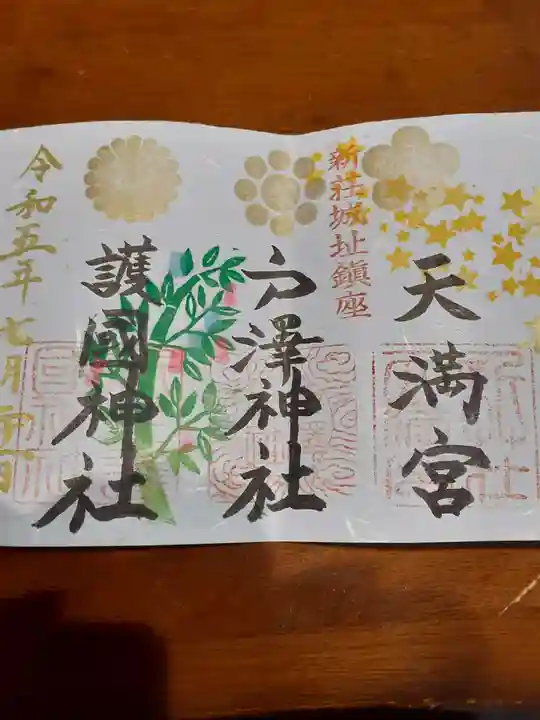 天満宮
新荘城址鎮座
戸澤神社
護國神社
令和五年七月